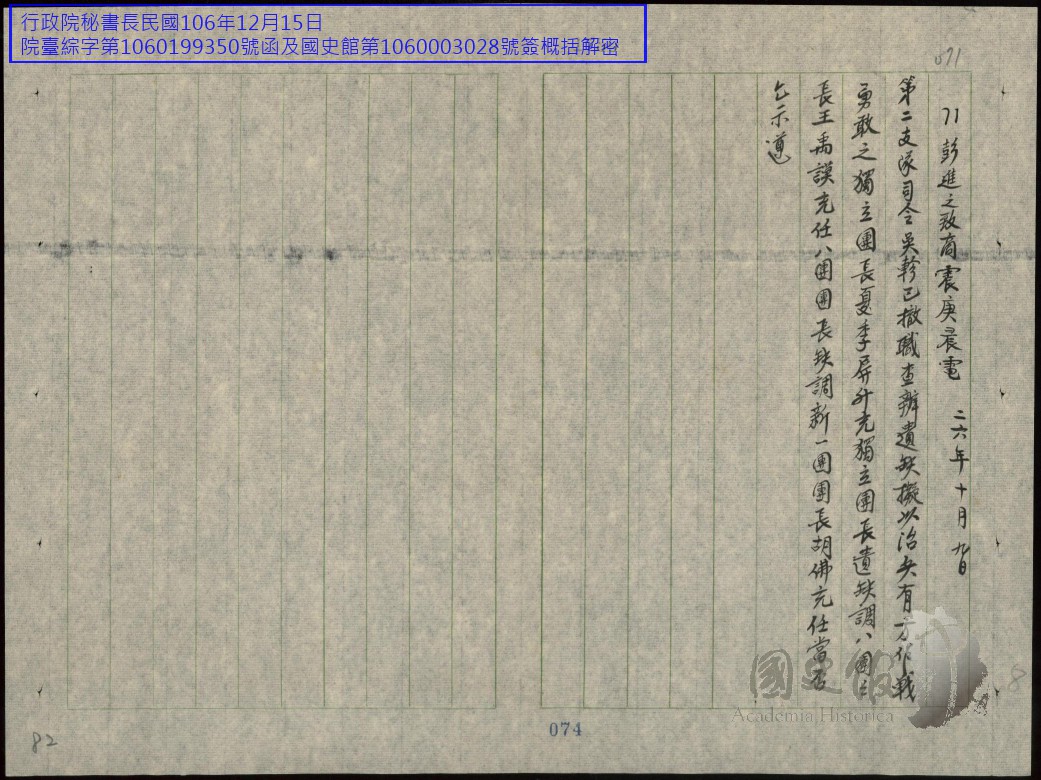 行政院秘書長民國106年12月15日
院臺綜字第1060199350號函及國史館第1060003028號簽概括解密
071
71 彭進之致商震庚晨電 二六年十月九日
第二支隊司令吳軫已撤職查辦遺缺擬以治兵有方作戰
勇敢之獨立團長夏季屏升充獨立團長遺缺調八團團
長王禹謨充任八團團長缺調新一團團長胡佛充任當否
乞示遵
國史館
Academia Historica
8
074
82